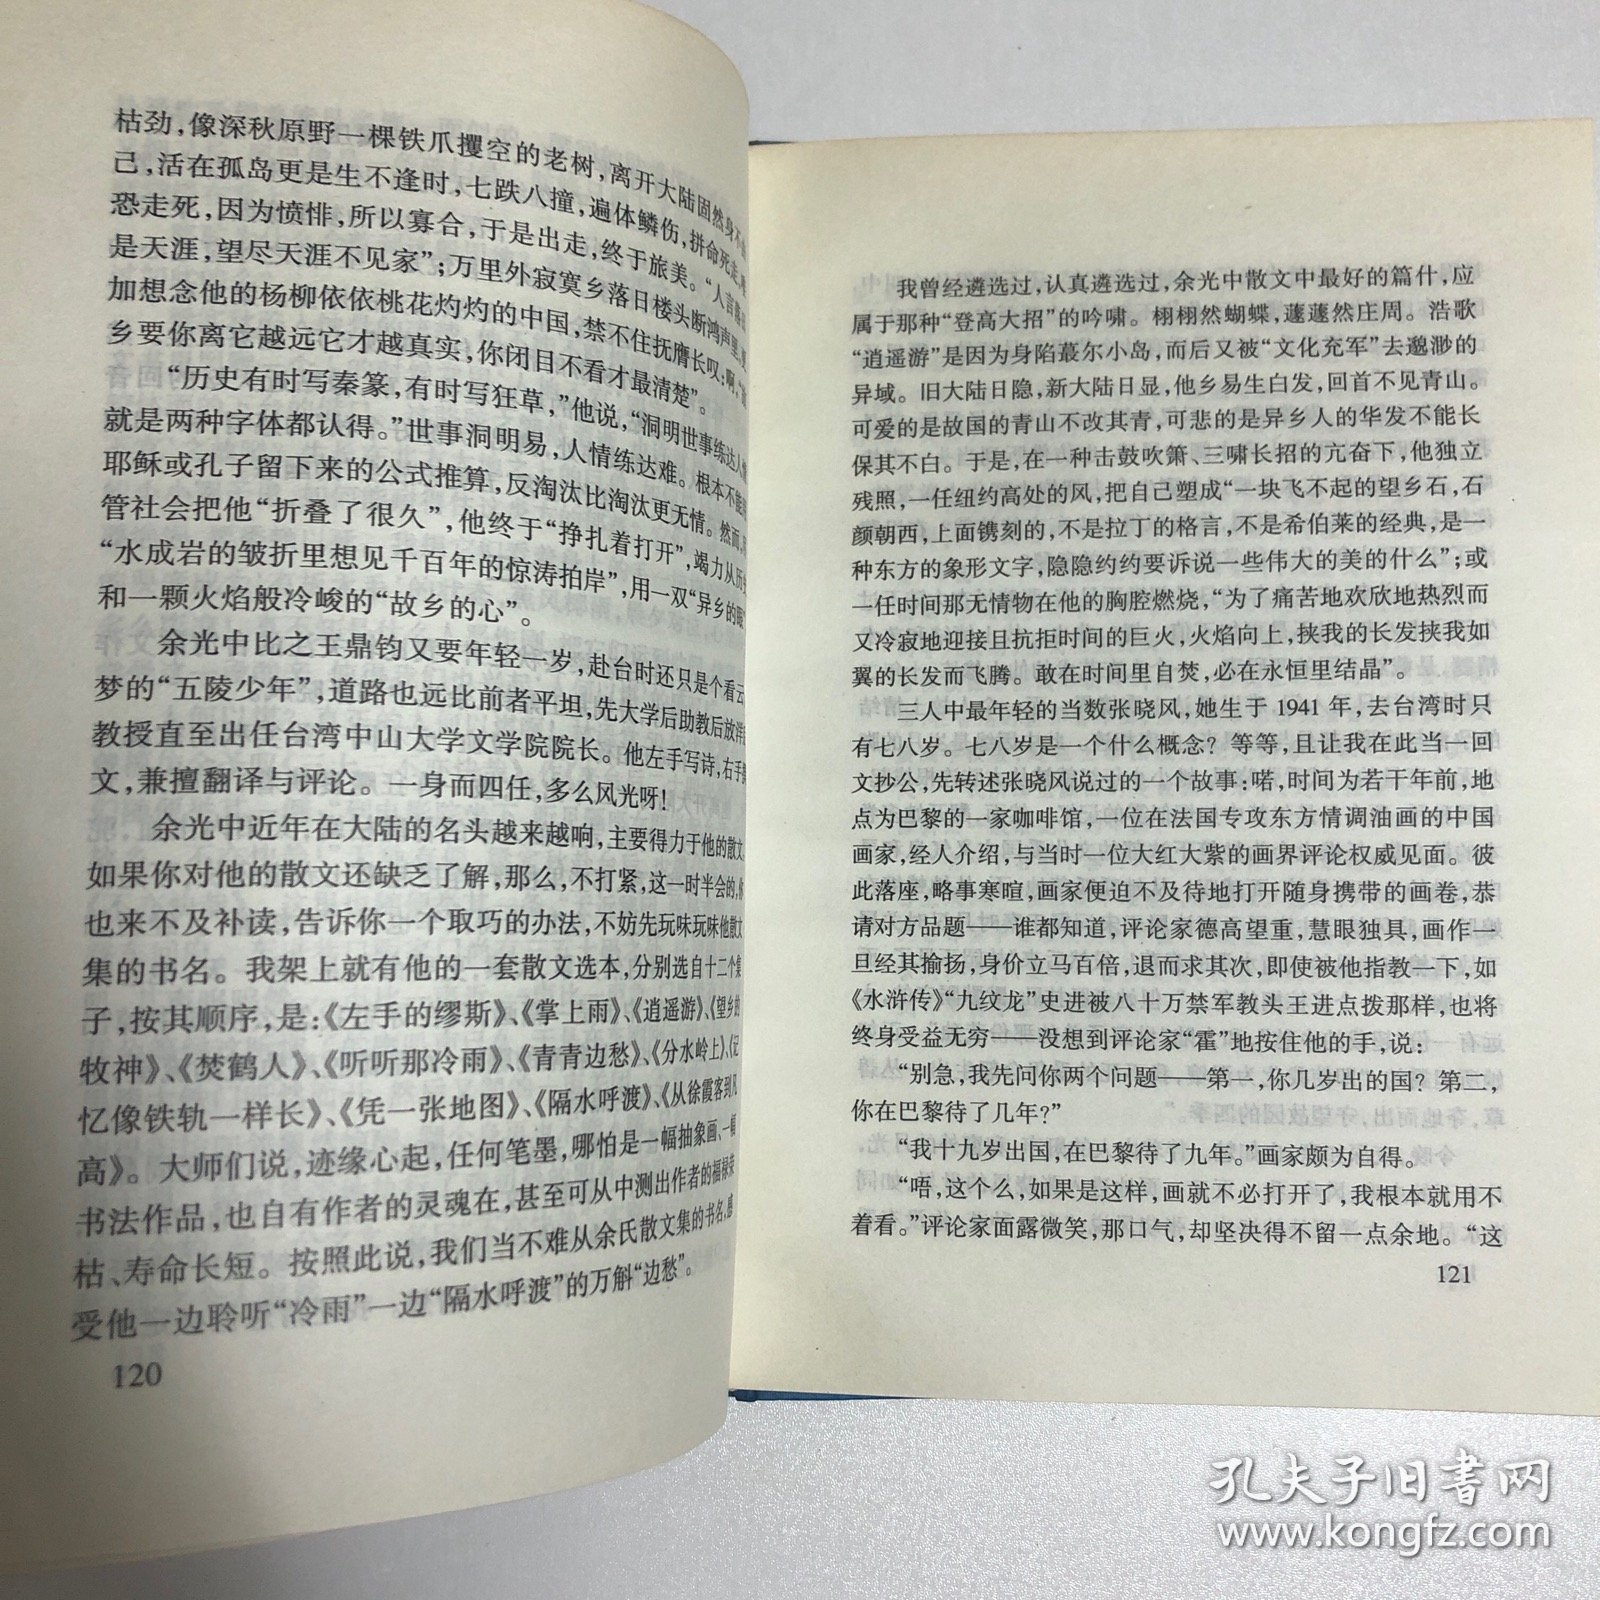 枯劲，像深秋原野一棵铁爪攫空的老树，离开大陆固然身不
己，活在孤岛更是生不逢时，七跌八撞，遍体鳞伤，拼命死走，唯
恐走死，因为愤悱，所以寡合，于是出走，终于旅美。“人言落日
是天涯，望尽天涯不见家”；万里外寂寞乡落日楼头断鸿声里，更
加想念他的杨柳依依桃花灼灼的中国，禁不住抚膺长叹：啊，“故
乡要你离它越远它才越真实，你闭目不看才最清楚”。
“历史有时写秦篆，有时写狂草，”他说，“洞明世事练达人情
就是两种字体都认得。”世事洞明易，人情练达难。根本不能
耶稣或孔子留下来的公式推算，反淘汰比淘汰更无情。然而，
管社会把他“折叠了很久”，他终于“挣扎着打开”，竭力从历史
“水成岩的皱折里想见千百年的惊涛拍岸”，用一双“异乡的眼”
和一颗火焰般冷峻的“故乡的心”。
余光中比之王鼎钧又要年轻一岁，赴台时还只是个看云
梦的“五陵少年”，道路也远比前者平坦，先大学后助教后放洋
教授直至出任台湾中山大学文学院院长。他左手写诗，右手
文，兼擅翻译与评论。一身而四任，多么风光呀！
余光中近年在大陆的名头越来越响，主要得力于他的散文。
如果你对他的散文还缺乏了解，那么，不打紧，这一时半会的，你
也来不及补读，告诉你一个取巧的办法，不妨先玩味玩味他散文
集的书名。我架上就有他的一套散文选本，分别选自十二个集
子，按其顺序，是：《左手的缪斯》、《掌上雨》、《逍遥游》、《望乡的
牧神》、《焚鹤人》、《听听那冷雨》、《青青边愁》、《分水岭上》、《记
忆像铁轨一样长》、《凭一张地图》、《隔水呼渡》、《从徐霞客到凡
高》。大师们说，迹缘心起，任何笔墨，哪怕是一幅抽象画、一幅
书法作品，也自有作者的灵魂在，甚至可从中测出作者的福禄荣
枯、寿命长短。按照此说，我们当不难从余氏散文集的书名，感
受他一边聆听“冷雨”一边“隔水呼渡”的万斛“边愁”。
120
我曾经遴选过，认真遴选过，余光中散文中最好的篇什，应
属于那种“登高大招”的吟啸。栩栩然蝴蝶，蘧蘧然庄周。浩歌
“逍遥游”是因为身陷蕞尔小岛，而后又被“文化充军”去邈渺的
异域。旧大陆日隐，新大陆日显，他乡易生白发，回首不见青山。
可爱的是故国的青山不改其青，可悲的是异乡人的华发不能长
保其不白。于是，在一种击鼓吹箫、三啸长招的亢奋下，他独立
残照，一任纽约高处的风，把自己塑成“一块飞不起的望乡石，石
颜朝西，上面镌刻的，不是拉丁的格言，不是希伯莱的经典，是一
种东方的象形文字，隐隐约约要诉说一些伟大的美的什么”；或
一任时间那无情物在他的胸腔燃烧，“为了痛苦地欢欣地热烈而
又冷寂地迎接且抗拒时间的巨火，火焰向上，挟我的长发挟我如
翼的长发而飞腾。敢在时间里自焚，必在永恒里结晶”。
三人中最年轻的当数张晓风，她生于 1941 年，去台湾时只
有七八岁。七八岁是一个什么概念？等等，且让我在此当一回
文抄公，先转述张晓风说过的一个故事：喏，时间为若干年前，地
点为巴黎的一家咖啡馆，一位在法国专攻东方情调油画的中国
画家，经人介绍，与当时一位大红大紫的画界评论权威见面。彼
此落座，略事寒暄，画家便迫不及待地打开随身携带的画卷，恭
请对方品题——谁都知道，评论家德高望重，慧眼独具，画作一
旦经其揄扬，身价立马百倍，退而求其次，即使被他指教一下，如
《水浒传》“九纹龙”史进被八十万禁军教头王进点拨那样，也将
终身受益无穷——没想到评论家“霍”地按住他的手，说：
“别急，我先问你两个问题——第一，你几岁出的国？第二，
你在巴黎待了几年？”
“我十九岁出国，在巴黎待了九年。”画家颇为自得。
“唔，这个么，如果是这样，画就不必打开了，我根本就用不
着看。”评论家面露微笑，那口气，却坚决得不留一点余地。“这
121
孔夫子旧书网
www.kongfz.com